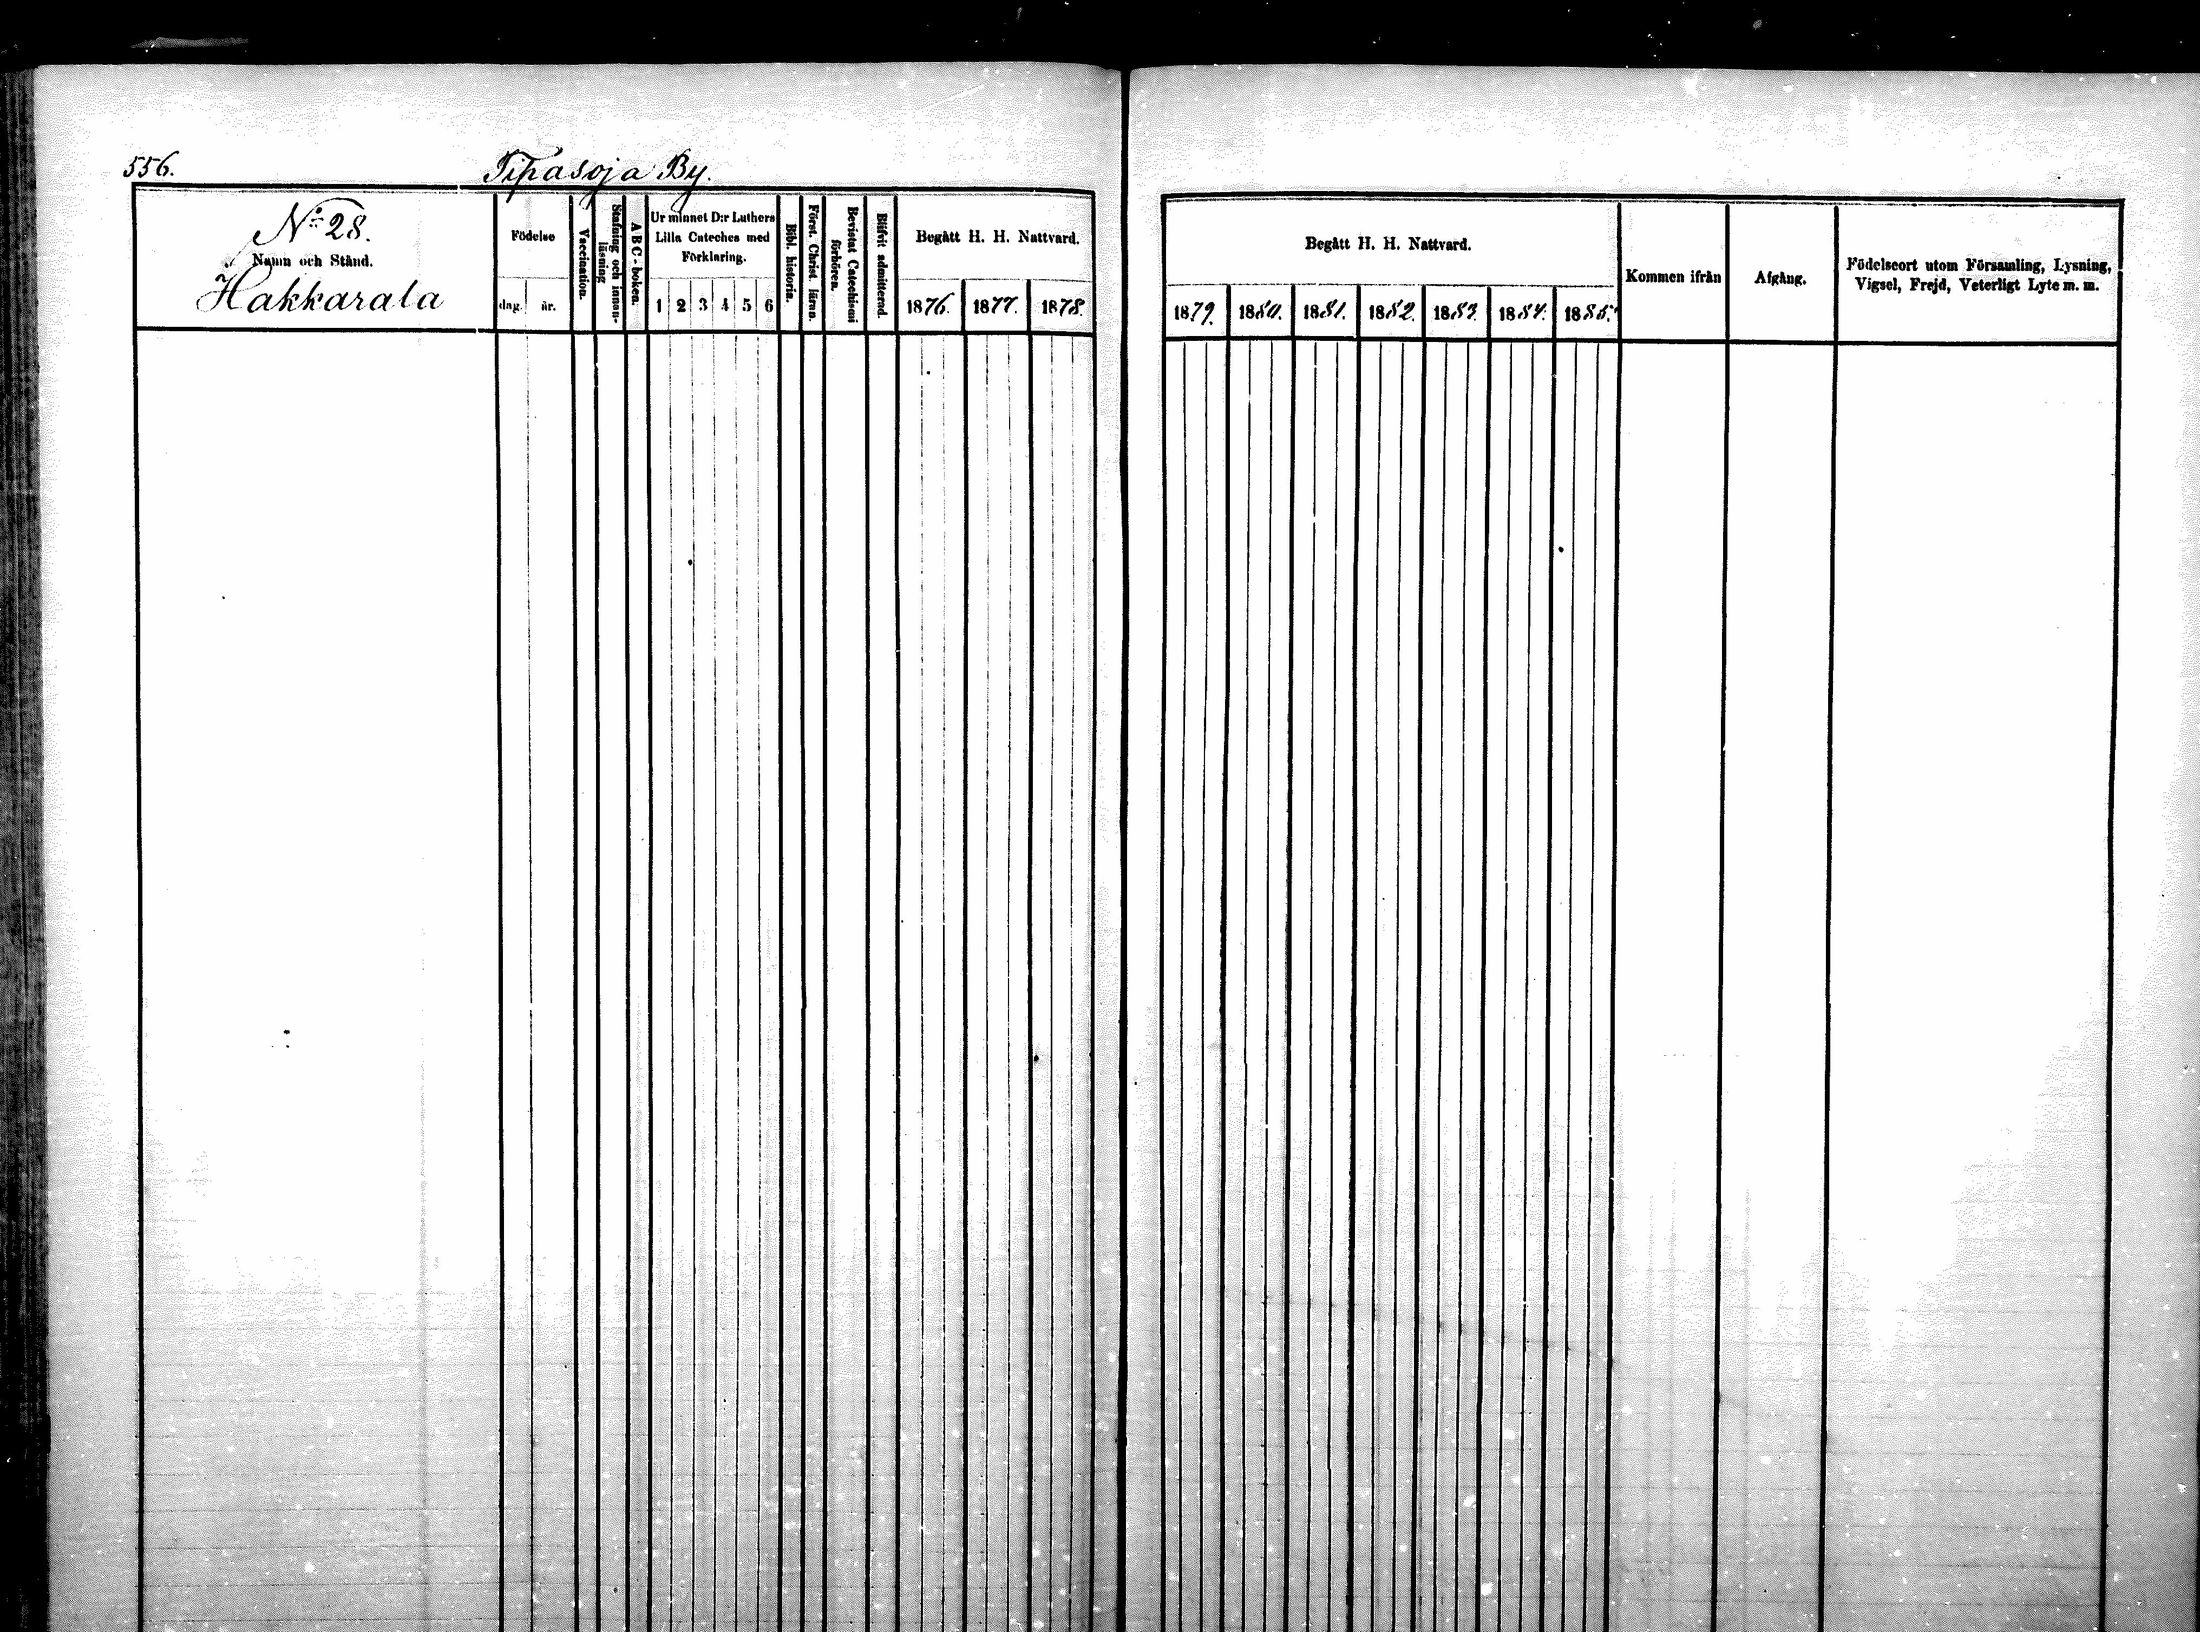 556.
Tipasoja By.
No: 28.
Namn och Stånd.
Hakkarala
Födelse
dag.
år.
Vaccination.
Stafning och innan-
läsning
A B C - boken.
Ur minnet D:r Luthers
Lilla Cateches med
Förklaring.
1 2 3 4 5 6
Bibl. historia.
Först. Christ. läran.
Bevistat Catechismi
förhören.
Blifvit admitterad
Begått H. H. Nattvard.
1876. 1877. 1878.
Begått H. H. Nattvard.
1879. 1880. 1881. 1882. 1883. 1884. 1885.
Kommen ifrån
Afgång.
Födelseort utom Församling, Lysning,
Vigsel, Frejd, Veterligt Lyte m. m.